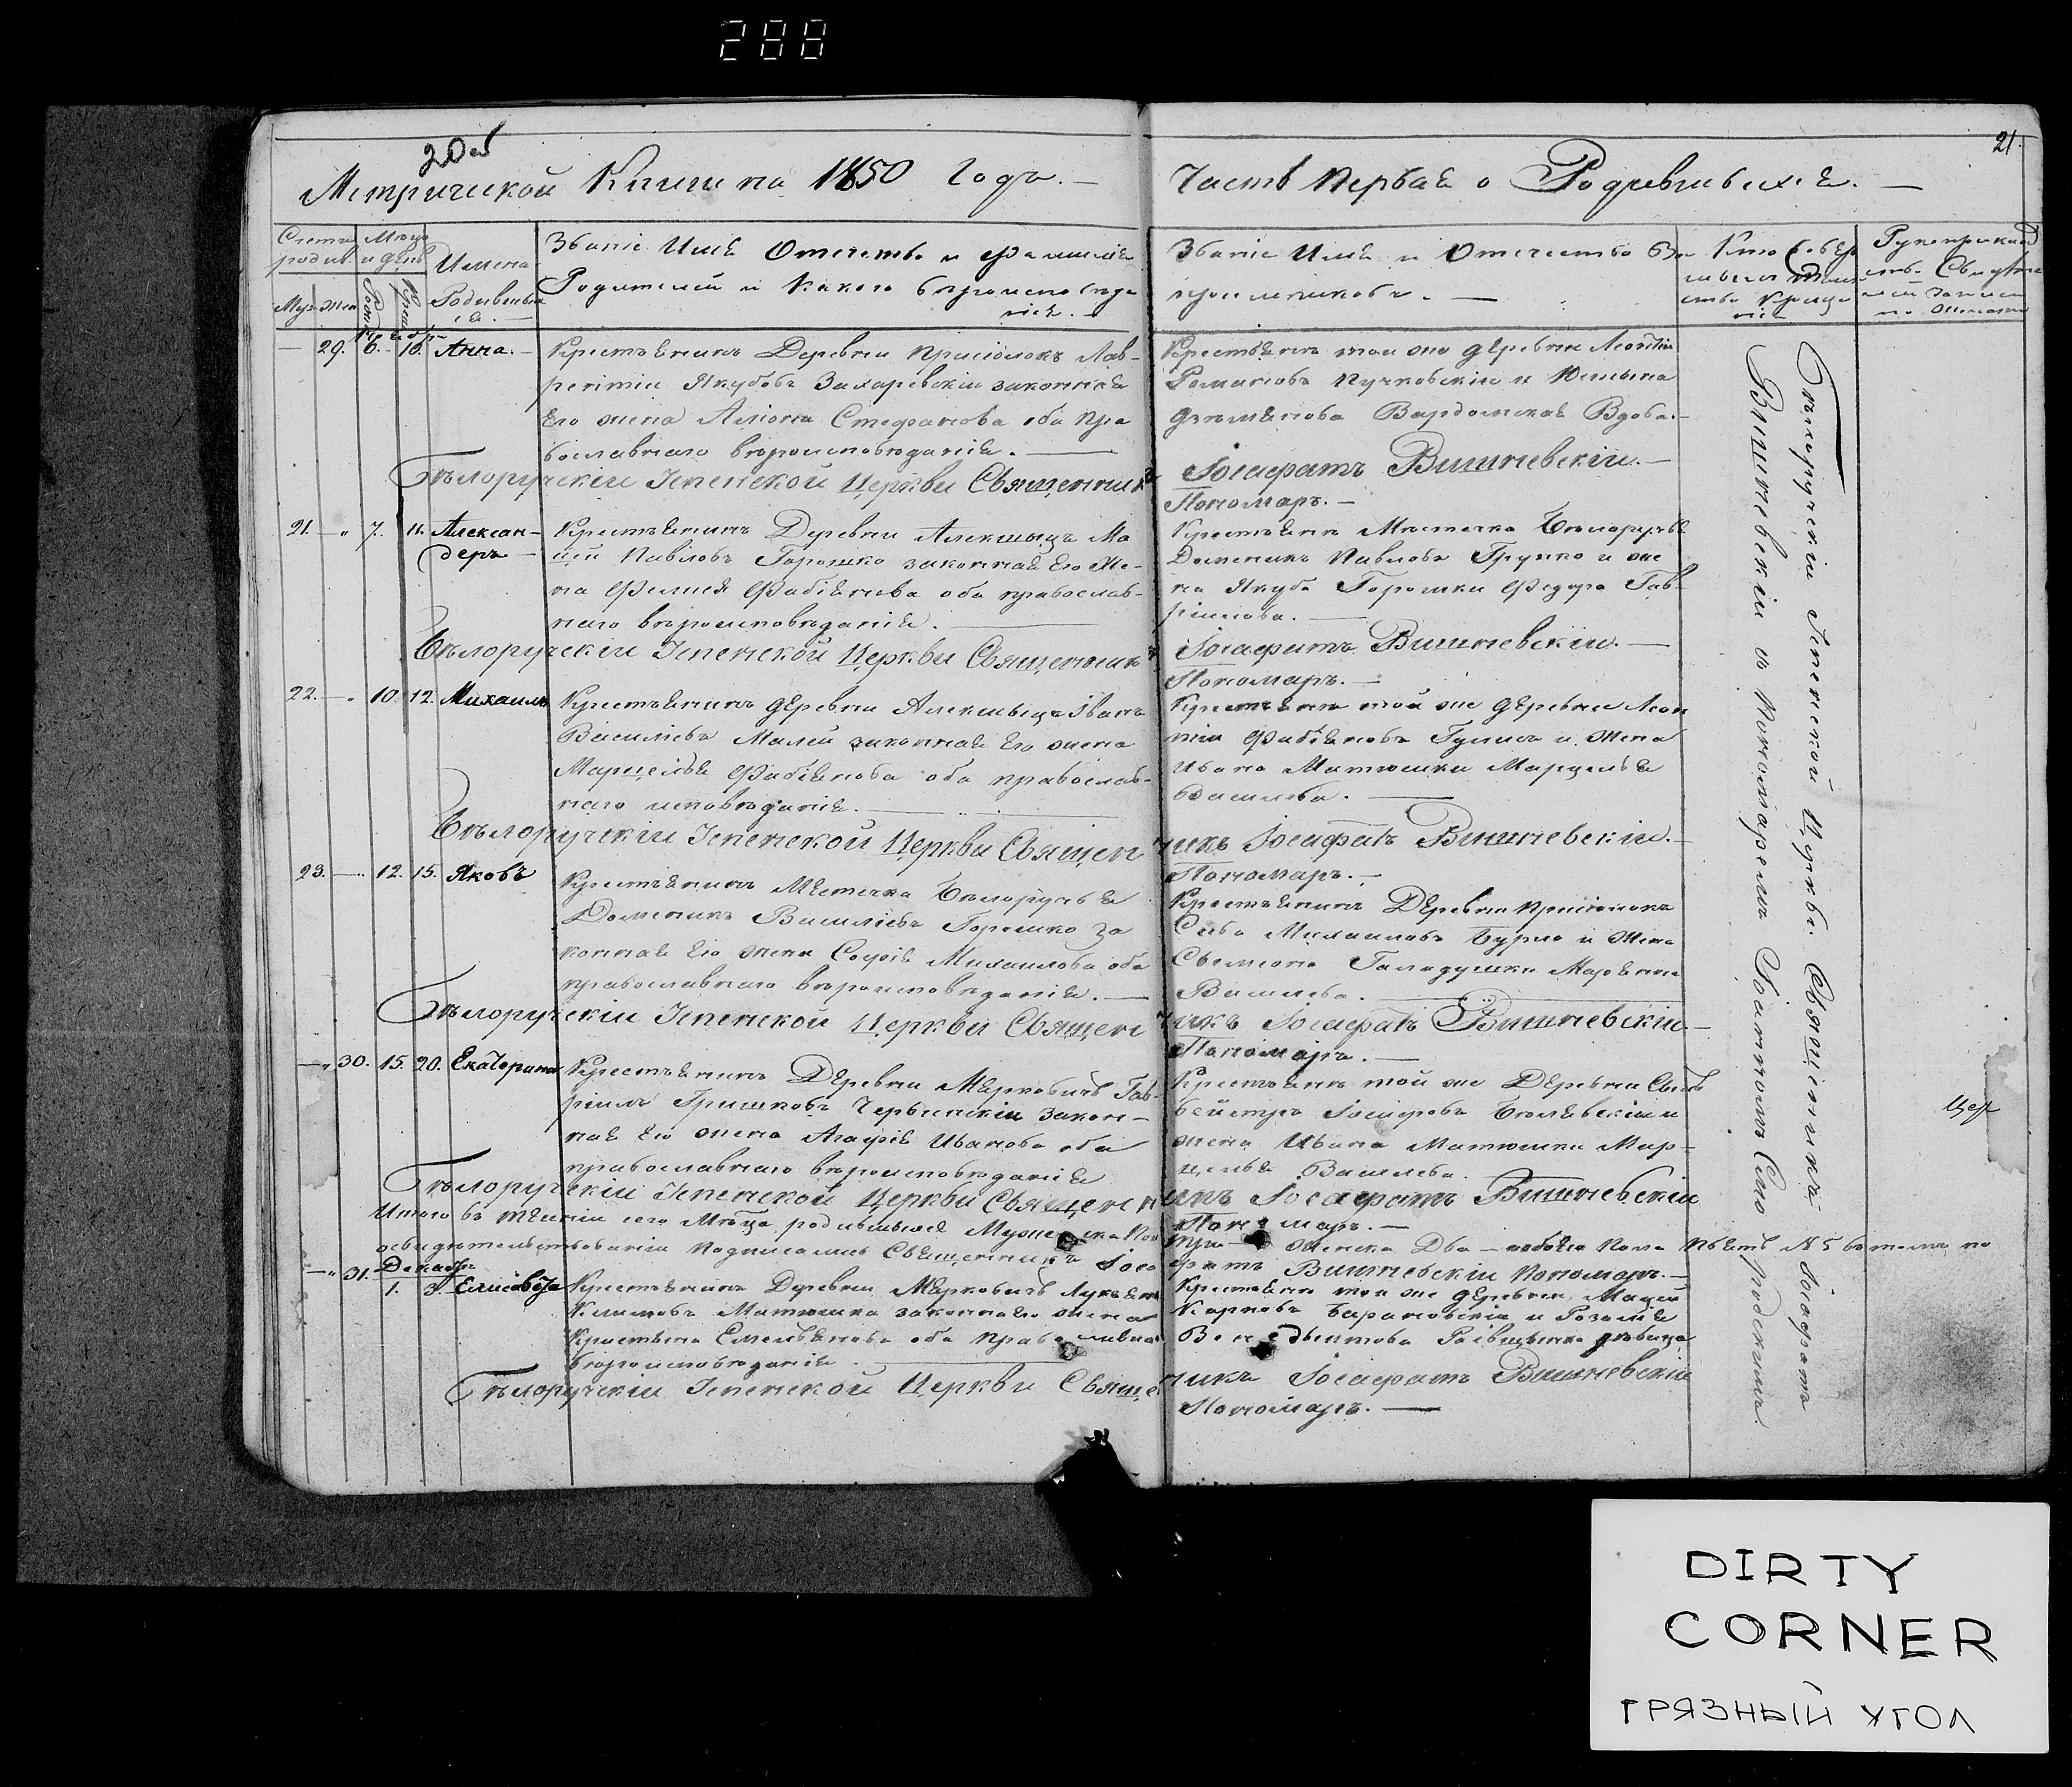 288
20об
21.
Метрической Книги на 1850 Года. —
Часть Первая о Родившихся. —
Счетъ родив.
Муж. Жен.
Мѣсяцъ и день
Имена Родившихся. —
Званіе Имя Отечество и Фамилія
Родителей и Какого вѣроисповѣда
нія. —
Званіе Имя и Отечество Во
пріемниковъ. —
Кто Совер
шалъ Таин
ство Креще
нія
Рукоприклад
ство Свидѣте
лей Записи
по Желанію
Ноября
— 29. 6. 10. Анна. —
Крестьянинъ Деревни Присіолокъ Лав-
рентій Якубовъ Захаревскій законная
Его жена Аліона Стефанова оба Пра
вославнаго вѣроисповѣданія. —
Крестьянинъ той же деревни Леонтій
Романовъ Пучковскій и Юстына
Вардомская Вдова. —
Бѣлоручскій Успенской Церкви Священникъ Іосафатъ Вишневскій. —
Пономарь. —
21. — 7. 11. Алексан-
деръ —
Крестьянинъ Деревни Алекшыцъ Ма
цѣй Павловъ Горошко законная Его Же-
на Фабіянова оба православ-
наго вѣроисповѣданія. —
Крестьянинъ Мѣстечка Бѣлоручья
Доменикъ Павловъ Групко и же
на Якуба Горошки Федора Гав-
ріилова. —
Бѣлоручскій Успенской Церкви Священникъ Іосафатъ Вишневскій. —
Пономарь. —
22. — 10. 12. Михаилъ
Крестьянинъ деревни Алекшыцъ Іванъ
Василіевъ Малей законная Его жена
Марцелья Фабіянова оба православ-
наго исповѣданія. —
Крестьянинъ той же деревни Леон
тій Фабіяновъ и Жена
Ивана Матюшки Марцелья
Васильева. —
Бѣлоручскій Успенской Церкви Священникъ Іосафатъ Вишневскій. —
Пономарь. —
23. — 12. 15. Яковъ
Крестьянинъ Местечка Бѣлоручья
Доменикъ Василіевъ Горошко за
конная Его жена Софія Михаилова оба
православнаго вѣроисповѣданія. —
Крестьянинъ Деревни Присіолокъ
Сава Михаиловъ Бурло и Жена
Сымеона Галадушки Маріянна
Васильева. —
Бѣлоручскій Успенской Церкви Священникъ Іосафатъ Вишневскій. —
Пономарь. —
— 30. 15. 20. Екатерина
Крестьянинъ Деревни Марковичъ Гав-
ріилъ Гришковъ Червинскій закон-
ная Его жена Агафія Иванова оба
православнаго вѣроисповѣданія
Крестьянинъ той же Деревни Силь
вейстръ Іосифовъ и
жена Ивана Матюшки Мар-
целья Васильева
Бѣлоручскій Успенской Церкви Священникъ Іосафатъ Вишневскій
Пономарь. —
Итого въ теченіи сего Мѣсяца родившихся Мужеска Пола
три — женска Два — обоего Пола Пѣять № 5 въ томъ по
освидѣтельствованіи Подписались Священникъ Іосафатъ Вишневскій Пономарь. —
Декабрь
— 31. 1. 3. Елисавета
Крестьянинъ Деревни Марковичъ Лукьянъ
Климовъ Матюшка законная его жена
Крыстына Емельянова оба Православнаго
вѣроисповѣданія. —
Крестьянинъ той же деревни Мацѣй
Карповъ Барановскій и Розалія
Венедыктова дѣвица
Бѣлоручскій Успенской Церкви Священникъ Іосафатъ Вишневскій
Пономарь. —
Бѣлоручскій Успенской Церкви Священникъ Іосафатъ
Вишневскій съ Пономаремъ
Цер
DIRTY
CORNER
ГРЯЗНЫЙ УГОЛ